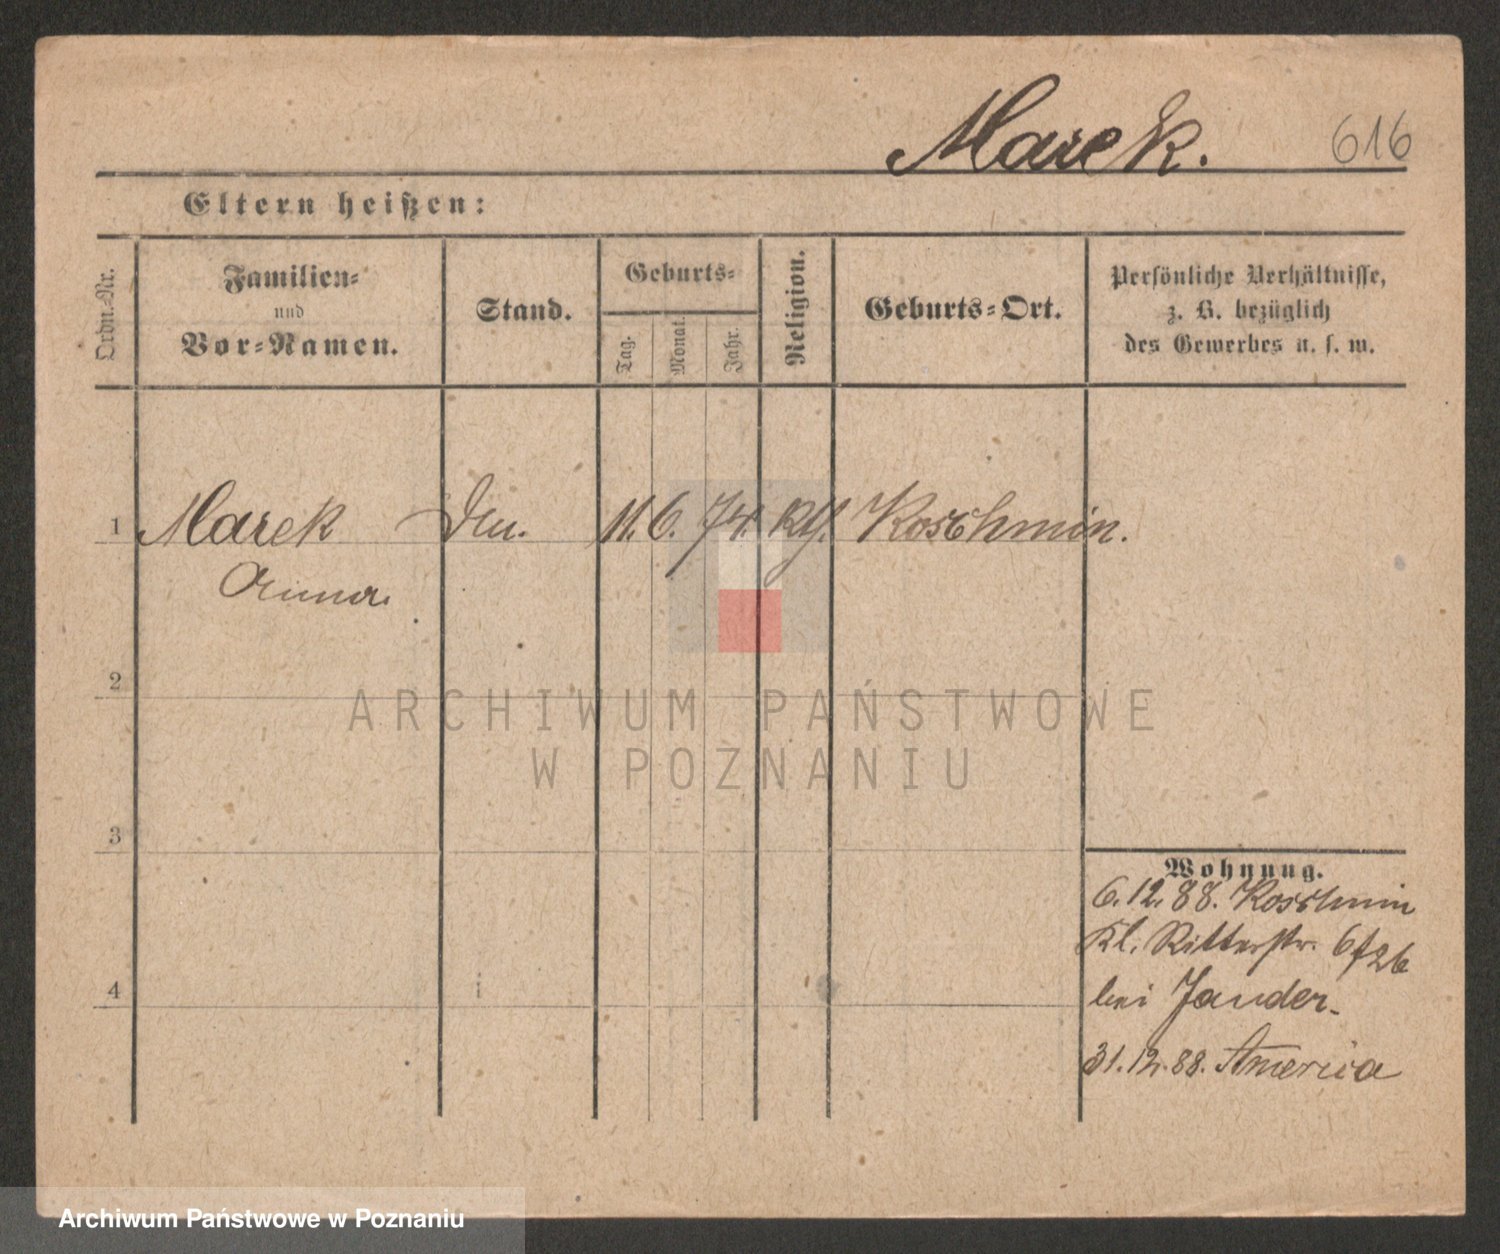 Marek. 616
Eltern heißen:
Ordn.-Nr.
Familien-
und
Vor-Namen.
Stand.
Geburts-
Tag.
Monat.
Jahr.
Religion.
Geburts-Ort.
Persönliche Verhältnisse,
z. B. bezüglich
des Gewerbes u. s. w.
1 Marek 11. 6. 74. Kth. Koschmin.
Anna.
2
ARCHIWUM PAŃSTWOWE
W POZNANIU
3
Wohnung.
6.12.88. Koschmin
Kl. Ritterstr. 6/26
4
bei Jander.
31.12.88. America
Archiwum Państwowe w Poznaniu